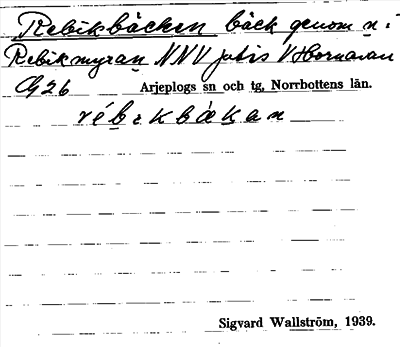 Rebikbäcken bäck genom n.
Rebikmyran NNV Jutis V
G26 Arjeplogs sn och tg, Norrbottens län.
rébikbäkan
Sigvard Wallström, 1939.